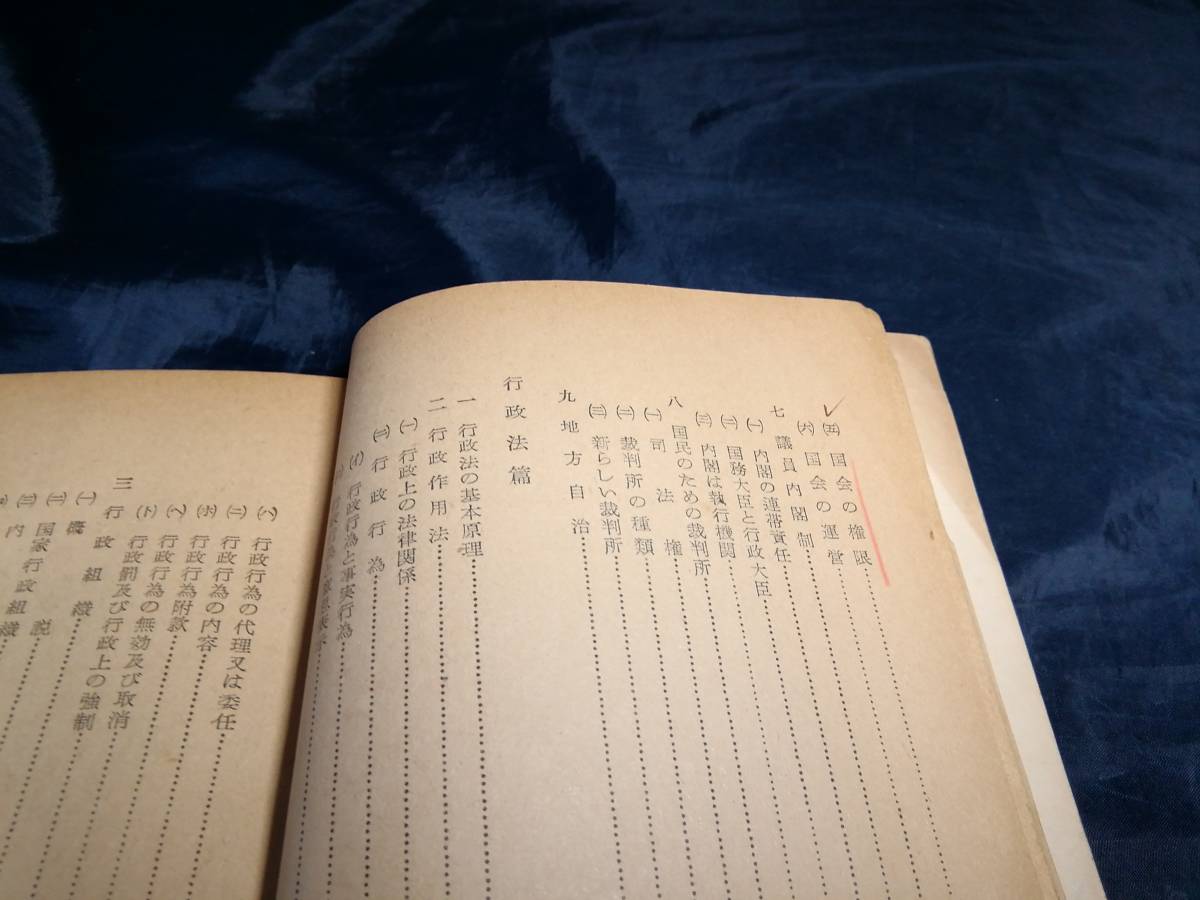 ㈤ 国会の権限
㈥ 国会の運営
七 議員内閣制
㈠ 内閣の連帯責任
㈡ 国務大臣と行政大臣
㈢ 内閣は執行機関
八 国民のための裁判所
㈠ 司法権
㈡ 裁判所の種類
㈢ 新らしい裁判所
九 地方自治
行政法篇
一 行政法の基本原理
二 行政作用法
㈠ 行政上の法律関係
㈡ 行政行為
(イ) 行政行為と事実行為
(ハ) 行政行為の代理又は委任
(ニ) 行政行為の内容
(ホ) 行政行為附款
(ヘ) 行政行為の無効及び取消
(ト) 行政罰及び行政上の強制
三 行政組織
㈠ 概説
㈡ 国家行政組織
㈢ 内